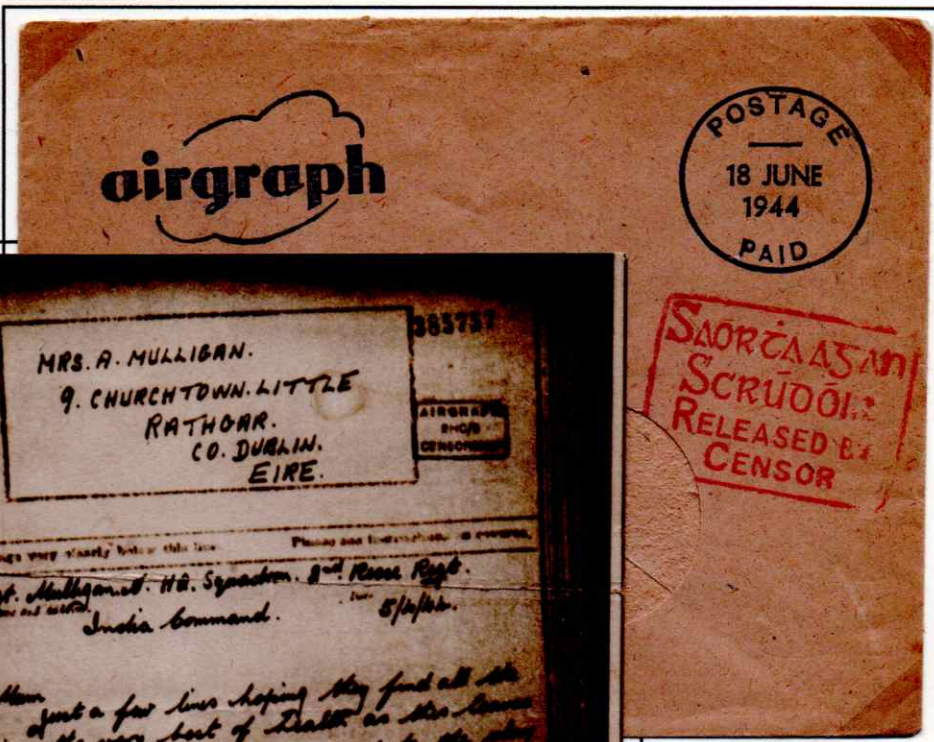 airgraph
POSTAGE
18 JUNE
1944
PAID
SAORTA AG AN
SCRÚDÓIR
RELEASED BY
CENSOR
385757
MRS. A. MULLIGAN.
9. CHURCHTOWN. LITTLE
RATHGAR.
CO. DUBLIN.
EIRE.
AIRGRAPH
CENSOR
very clearly below this line.
Mulligan. Hd. Squadron. Recce Regt.
India Command.
just a few lines hoping they find all the
the very best of health as this leaves